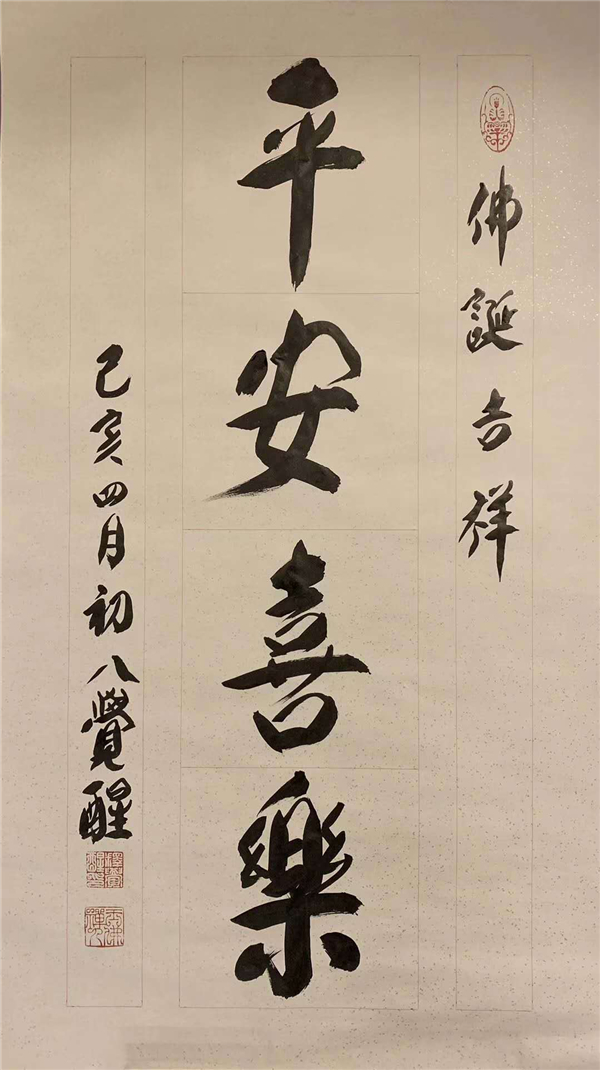 佛誕吉祥
平安喜樂
己亥四月初八覺醒